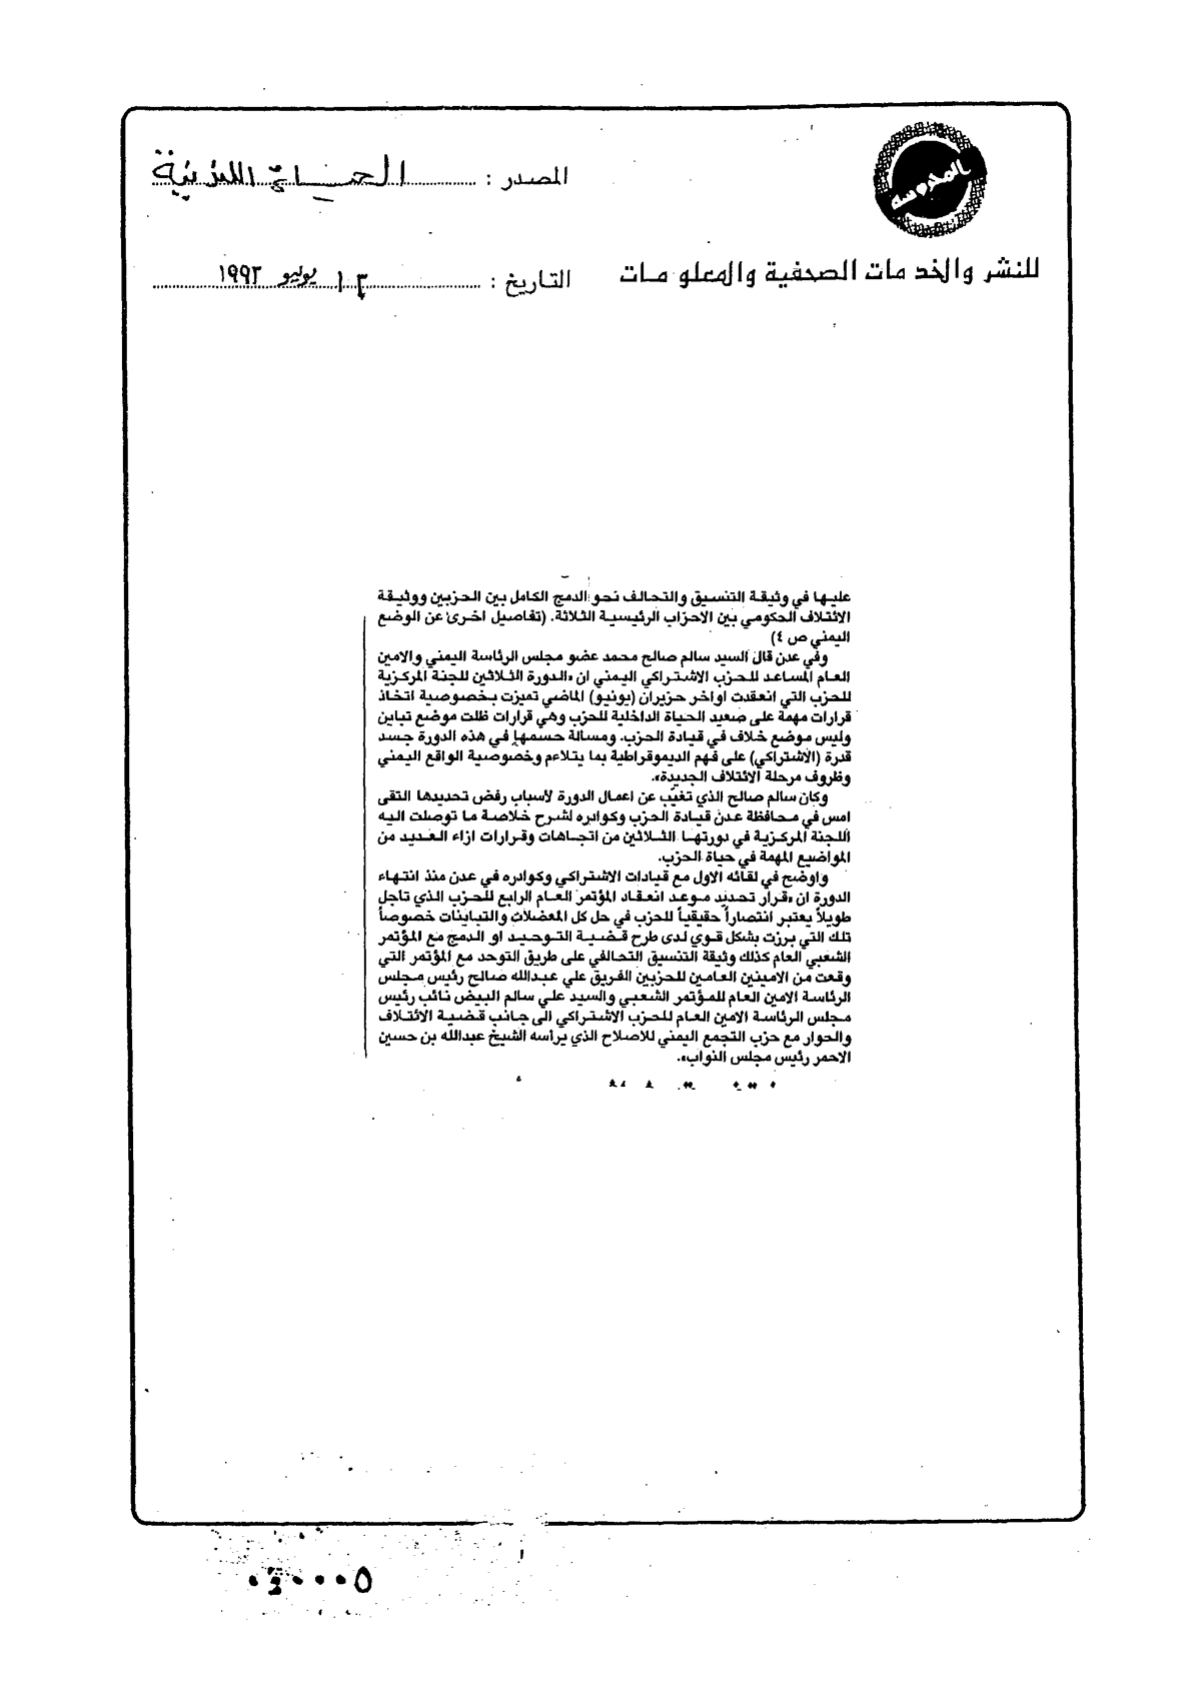 المدروسه
المصدر : الحياة اللندنية
للنشر والخدمات الصحفية والمعلومات
التاريخ : ١٣ يوليو ١٩٩٣
عليها في وثيقة التنسيق والتحالف نحو الدمج الكامل بين الحزبين ووثيقة
الائتلاف الحكومي بين الاحزاب الرئيسية الثلاثة. (تفاصيل اخرى عن الوضع
اليمني ص ٤)
وفي عدن قال السيد سالم صالح محمد عضو مجلس الرئاسة اليمني والامين
العام المساعد للحزب الاشتراكي اليمني ان «الدورة الثلاثين للجنة المركزية
للحزب التي انعقدت اواخر حزيران (يونيو) الماضي تميزت بخصوصية اتخاذ
قرارات مهمة على صعيد الحياة الداخلية للحزب وهي قرارات ظلت موضع تباين
وليس موضع خلاف في قيادة الحزب. ومسالة حسمها في هذه الدورة جسد
قدرة (الاشتراكي) على فهم الديموقراطية بما يتلاءم وخصوصية الواقع اليمني
وظروف مرحلة الائتلاف الجديدة».
وكان سالم صالح الذي تغيّب عن اعمال الدورة لأسباب رفض تحديدها التقى
امس في محافظة عدن قيادة الحزب وكوادره لشرح خلاصة ما توصلت اليه
اللجنة المركزية في دورتها الثلاثين من اتجاهات وقرارات ازاء العديد من
المواضيع المهمة في حياة الحزب.
واوضح في لقائه الاول مع قيادات الاشتراكي وكوادره في عدن منذ انتهاء
الدورة ان «قرار تحديد موعد انعقاد المؤتمر العام الرابع للحزب الذي تاجل
طويلاً يعتبر انتصاراً حقيقياً للحزب في حل كل المعضلات والتباينات خصوصاً
تلك التي برزت بشكل قوي لدى طرح قضية التوحيد او الدمج مع المؤتمر
الشعبي العام كذلك وثيقة التنسيق التحالفي على طريق التوحد مع المؤتمر التي
وقعت من الامينين العامين للحزبين الفريق علي عبدالله صالح رئيس مجلس
الرئاسة الامين العام للمؤتمر الشعبي والسيد علي سالم البيض نائب رئيس
مجلس الرئاسة الامين العام للحزب الاشتراكي الى جانب قضية الائتلاف
والحوار مع حزب التجمع اليمني للاصلاح الذي يرأسه الشيخ عبدالله بن حسين
الاحمر رئيس مجلس النواب».